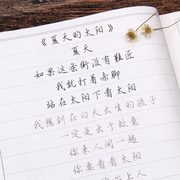 《夏天的太阳》
夏天
如果这条街没有鞋匠
我就打着赤脚
站在太阳下看太阳
我想到在白天出生的孩子
一定是出于故意
你来人间一趟
你要看看太阳